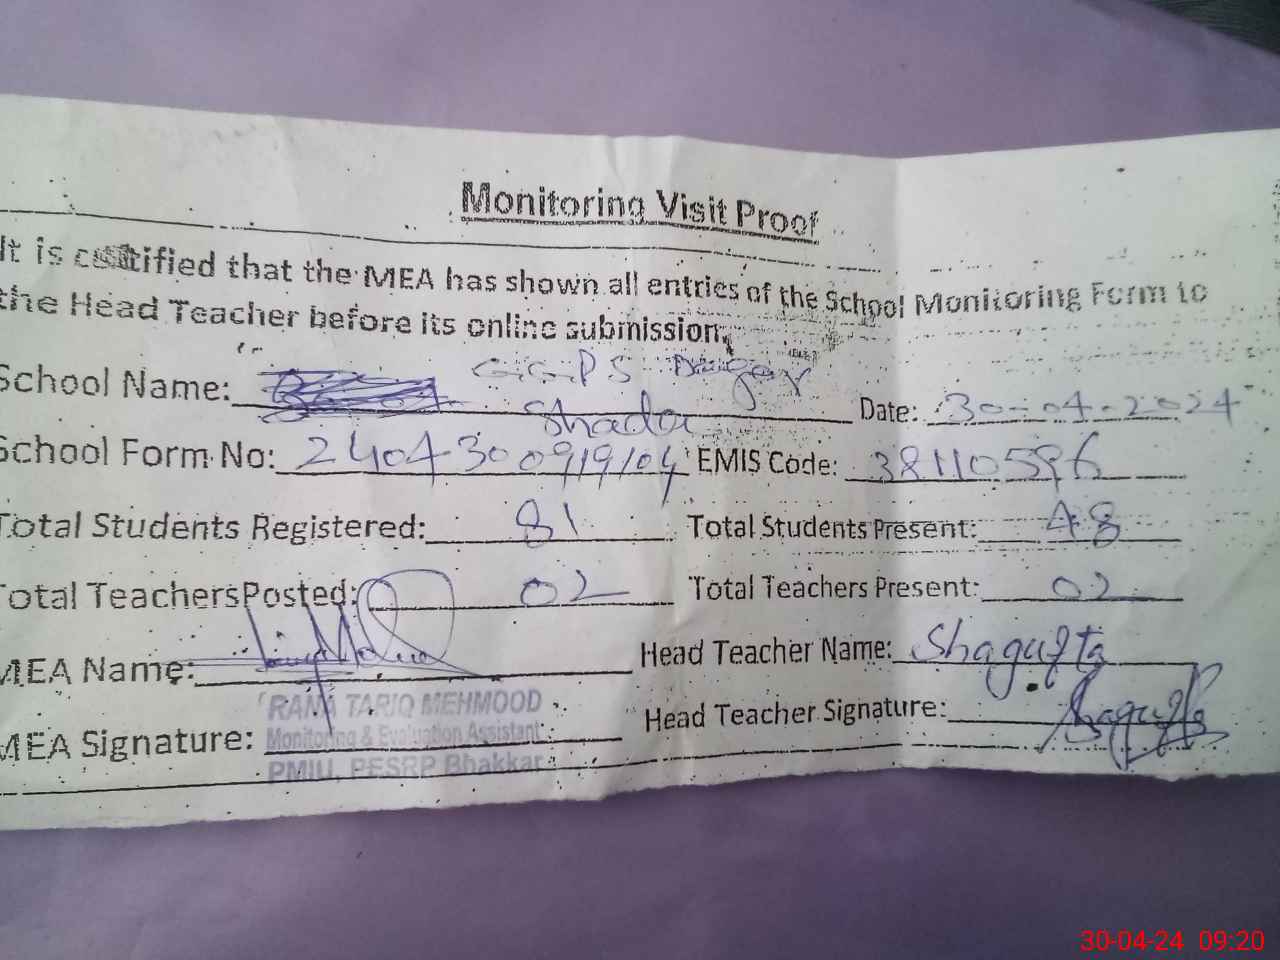 Monitoring Visit Proof
It is certified that the MEA has shown all entries of the School Monitoring Form to
the Head Teacher before its online submission.
School Name: G.G.P.S Shada Date: 30-04-2024
School Form No: 2404300919104 EMIS Code: 38110596
Total Students Registered: 81 Total Students Present: 48
Total Teachers Posted: 02 Total Teachers Present: 02
MEA Name: Head Teacher Name: Shagufta
RANA TARIQ MEHMOOD
MEA Signature: Monitoring & Evaluation Assistant Head Teacher Signature: Shagufta
PMIU, PESRP Bhakkar
30-04-24 09:20